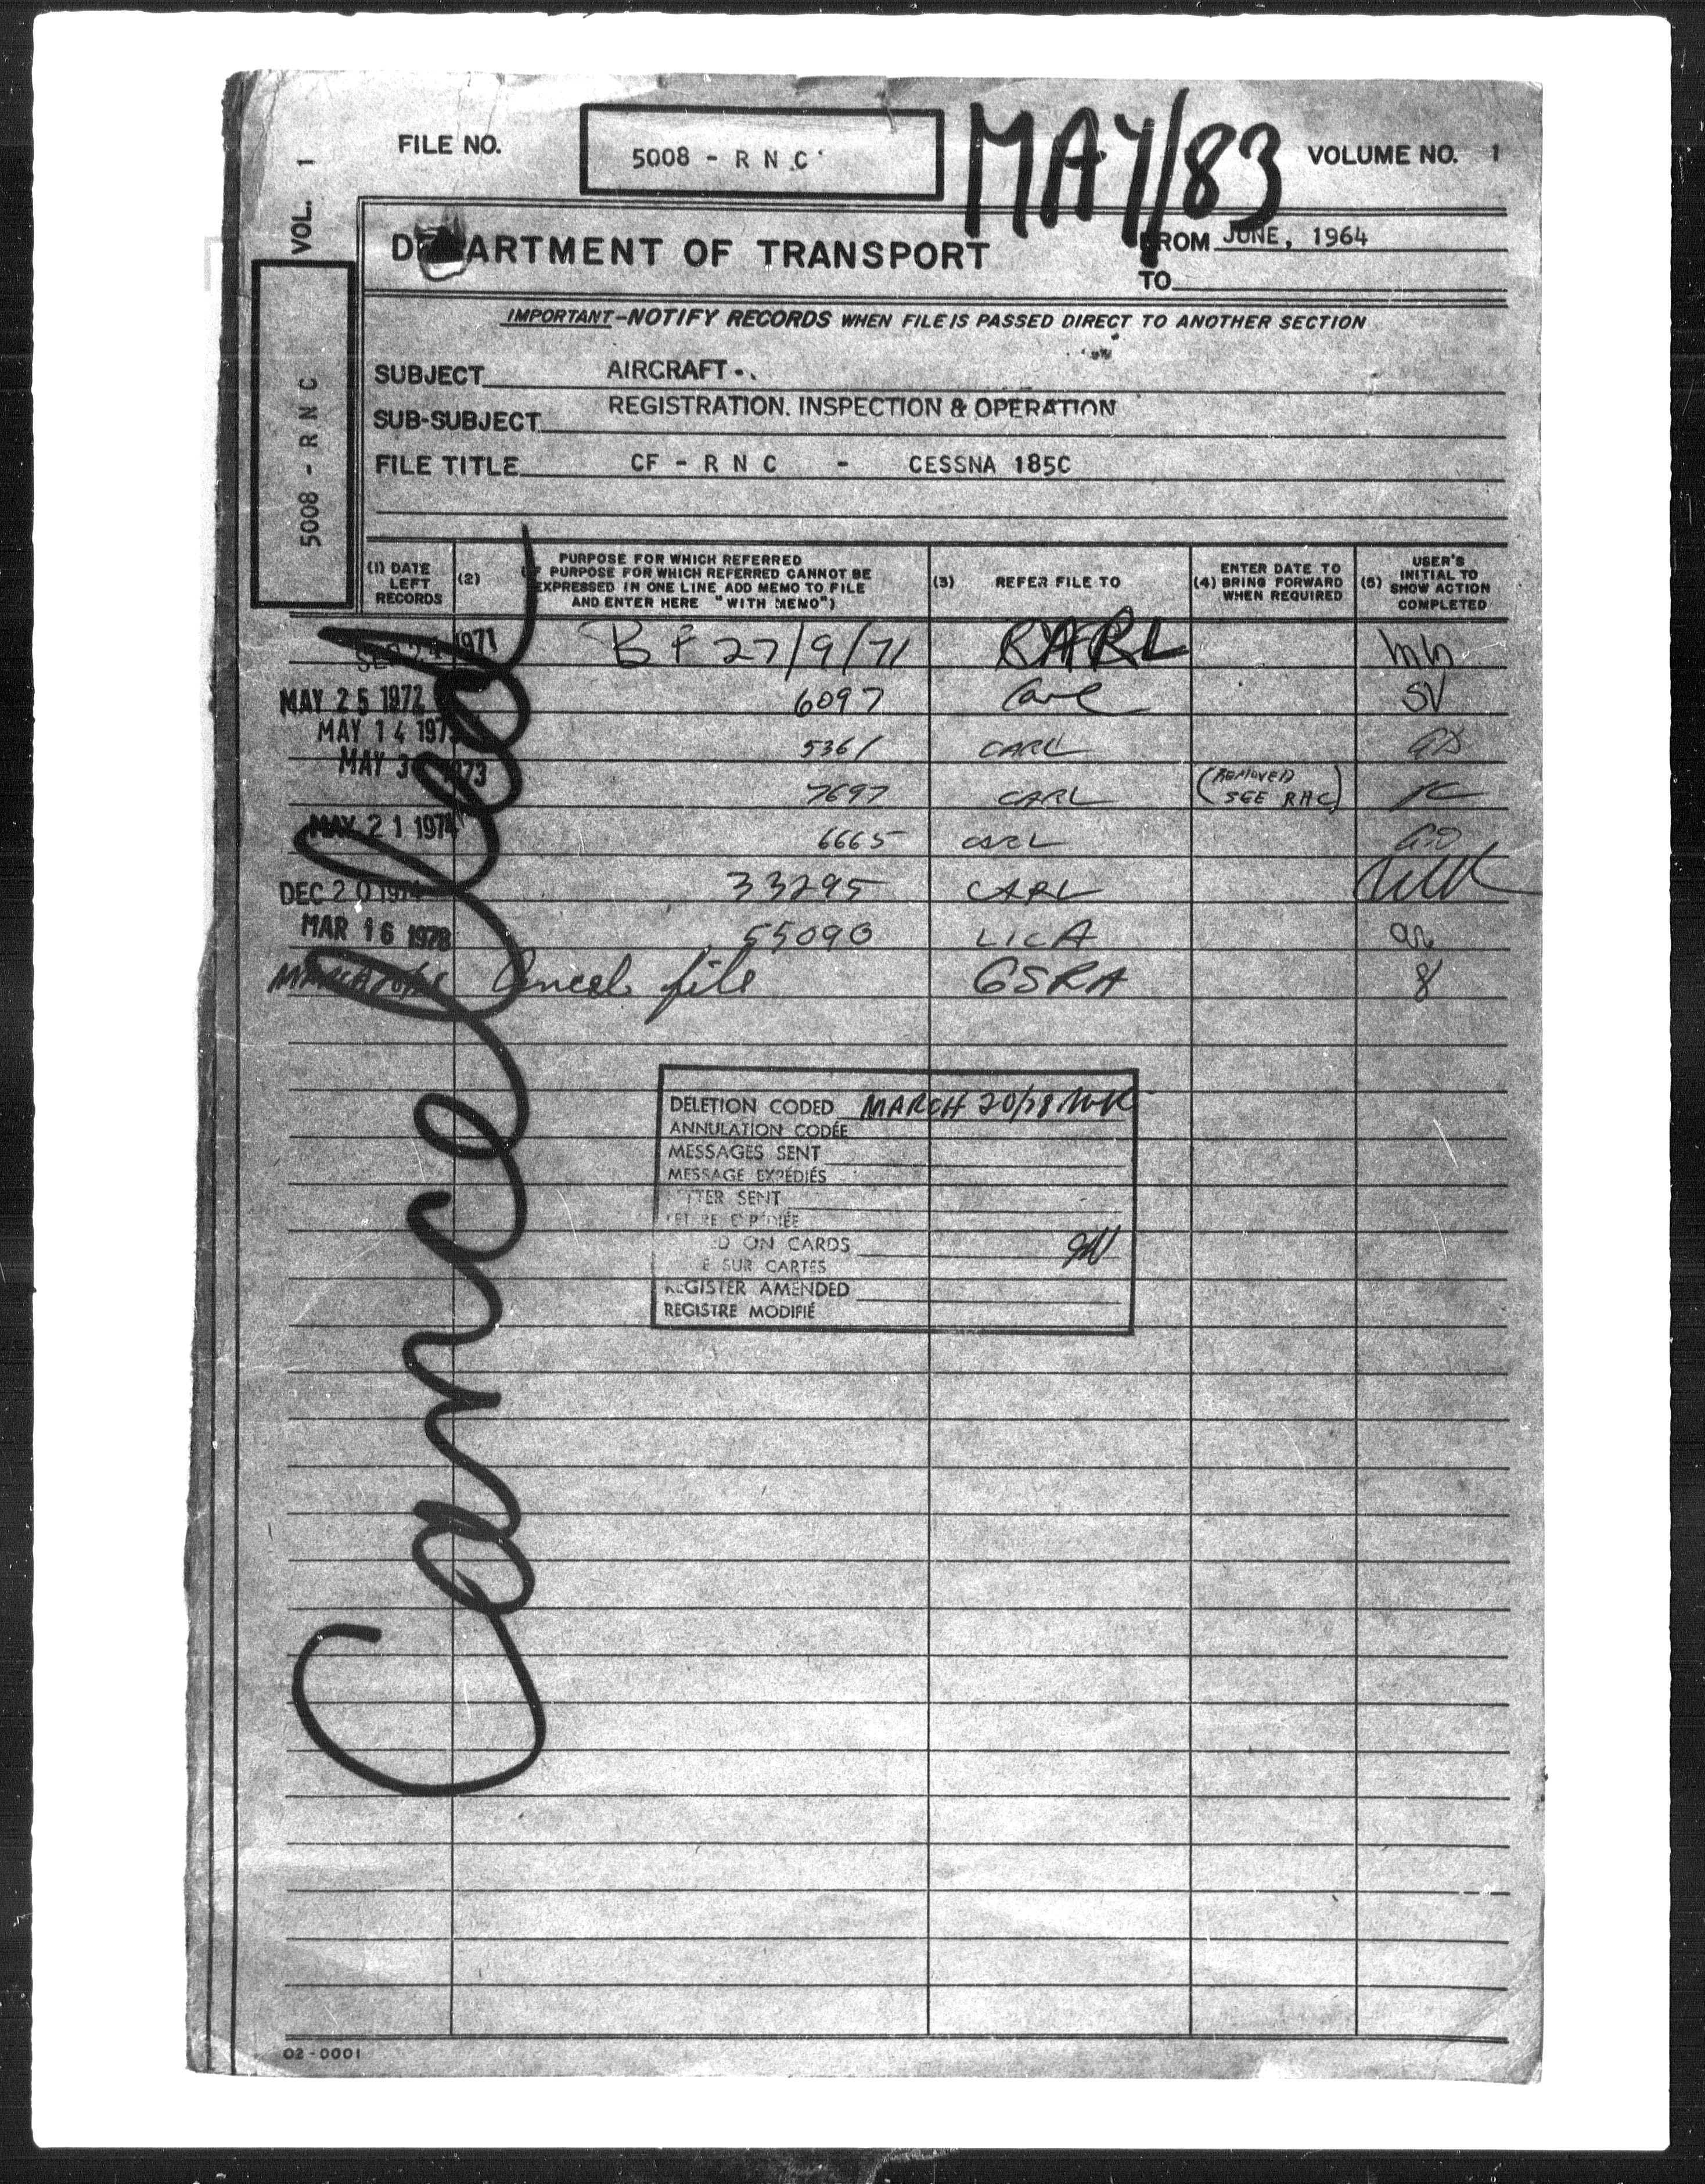 FILE NO. 5008 - R N C MAY/83 VOLUME NO. 1
VOL. 1
DEPARTMENT OF TRANSPORT
FROM JUNE, 1964
TO
IMPORTANT-NOTIFY RECORDS WHEN FILE IS PASSED DIRECT TO ANOTHER SECTION
5008 - R N C
SUBJECT AIRCRAFT
SUB-SUBJECT REGISTRATION. INSPECTION & OPERATION
FILE TITLE CF - R N C - CESSNA 185C
(1) DATE LEFT RECORDS
(2) PURPOSE FOR WHICH REFERRED
PURPOSE FOR WHICH REFERRED CANNOT BE
EXPRESSED IN ONE LINE ADD MEMO TO FILE
AND ENTER HERE "WITH MEMO")
(3) REFER FILE TO
(4) ENTER DATE TO BRING FORWARD WHEN REQUIRED
(5) USER'S INITIAL TO SHOW ACTION COMPLETED
SEP 1971 B F 27/9/71 RARL
MAY 25 1972 6097 Carl SV
MAY 14 1973 5361 CARL
MAY 3 1973 7697 CARL (REMOVED SEE RHC)
MAY 21 1974 6665 CARL
DEC 20 1974 33295 CARL
MAR 16 1978 55090 LICA
Cancel file GSRA
Cancelled
DELETION CODED MARCH 20/78
ANNULATION CODÉE
MESSAGES SENT
MESSAGE EXPÉDIÉS
SENT
ON CARDS
SUR CARTES
REGISTER AMENDED
REGISTRE MODIFIÉ
02-0001